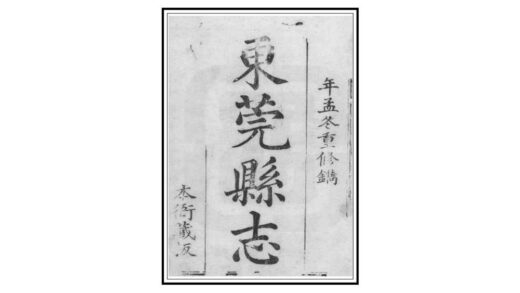 年孟冬重修鐫
東莞縣志
本衙藏版